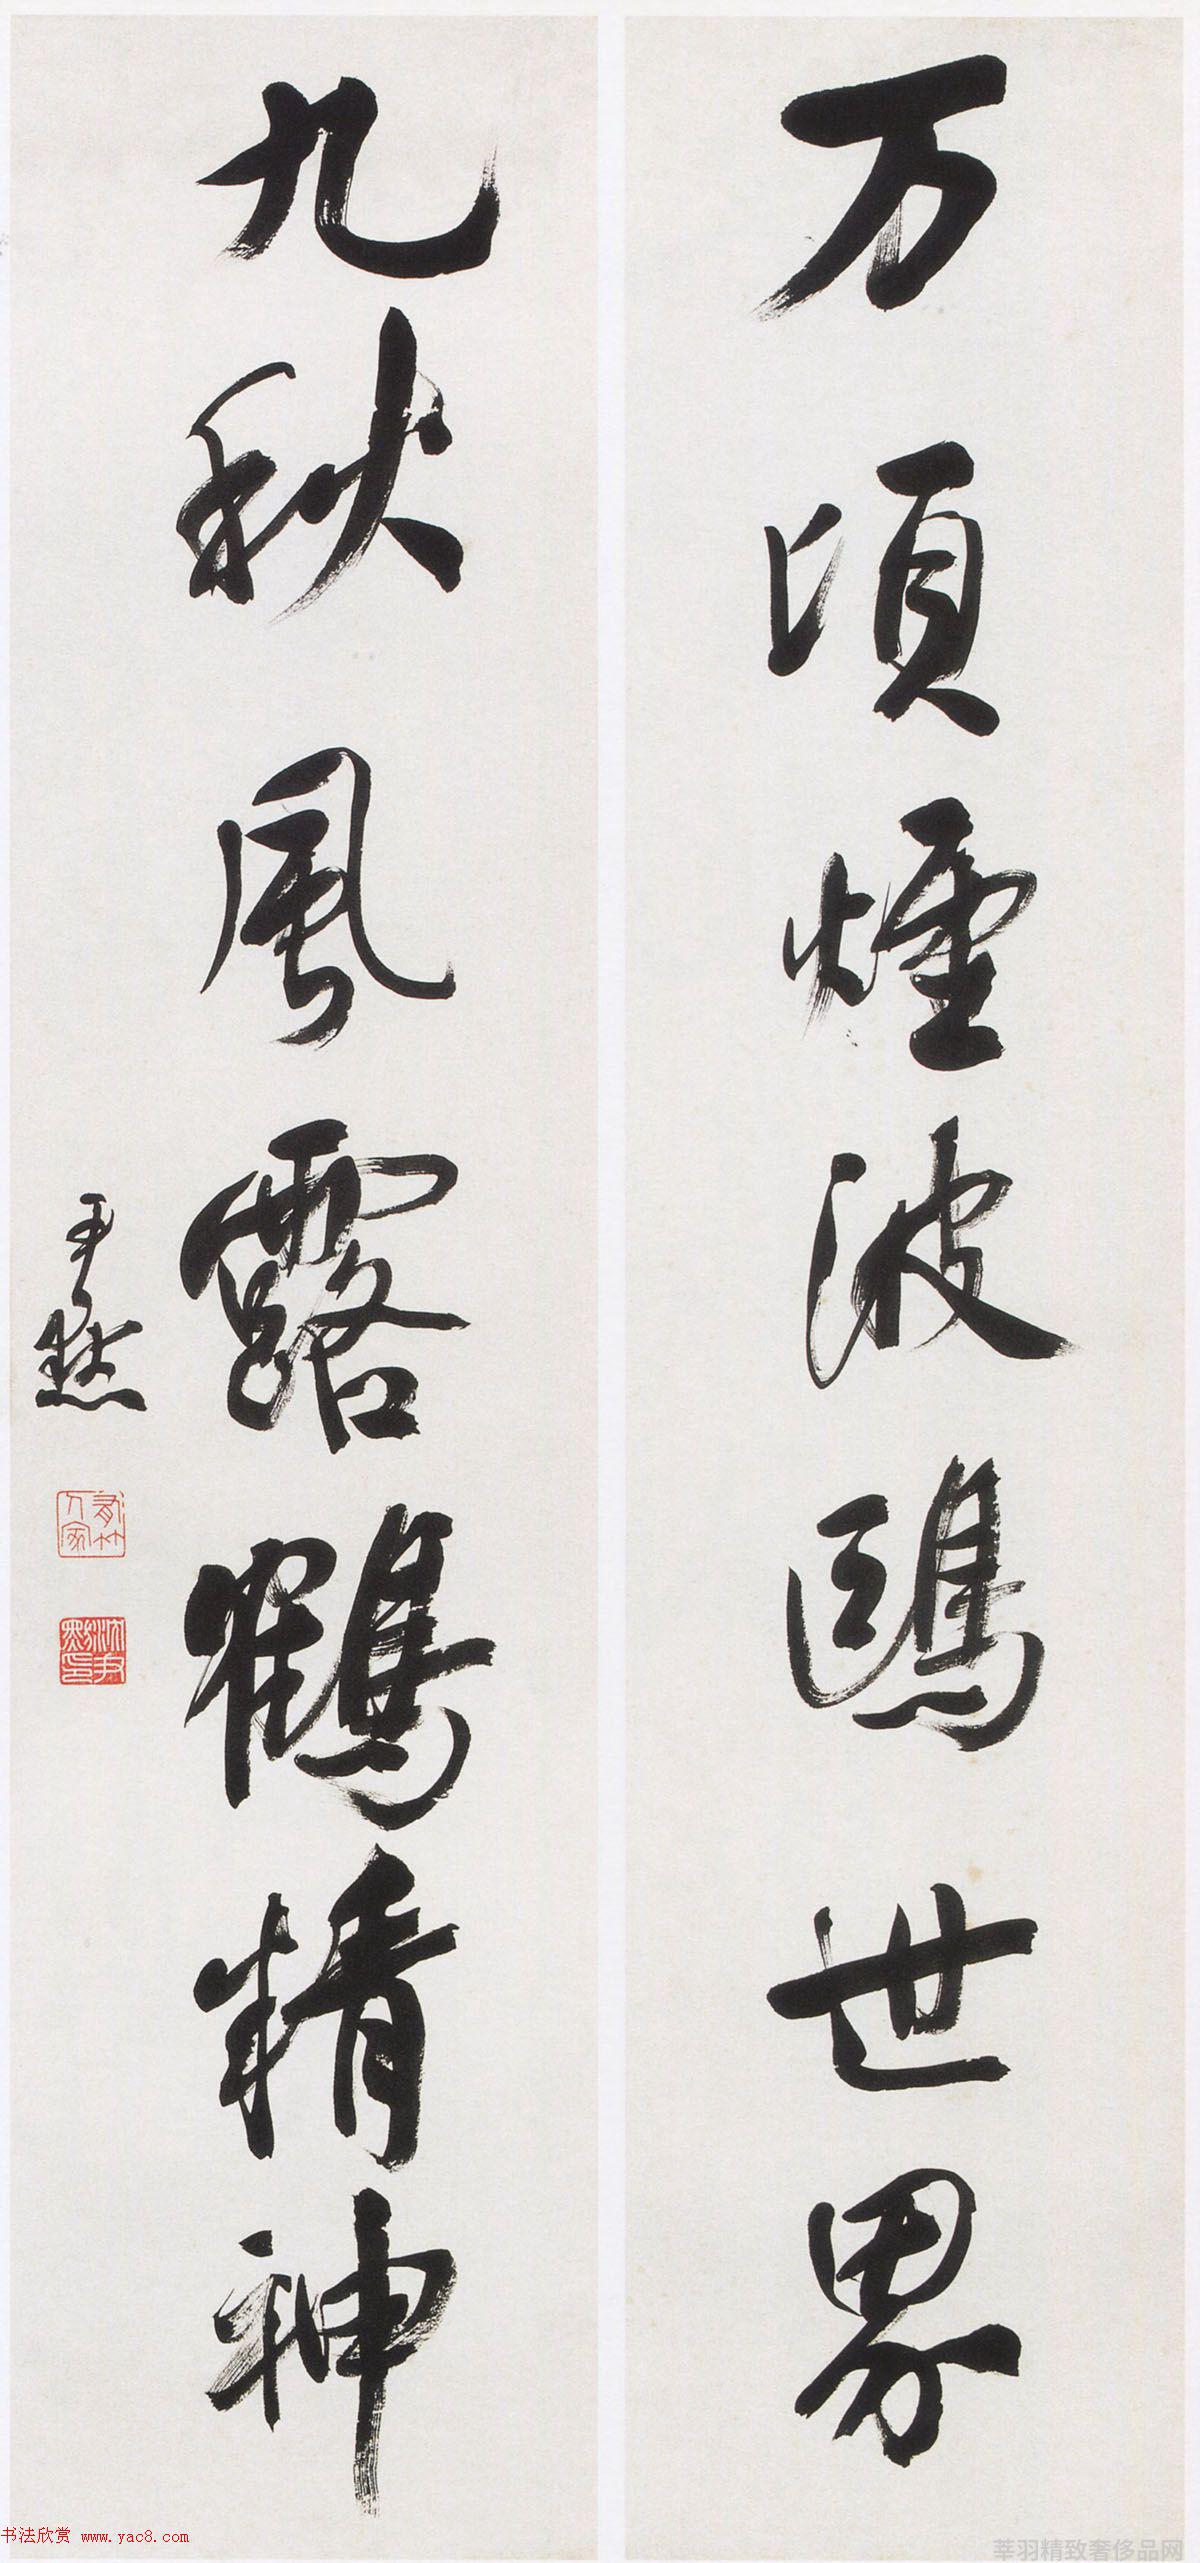 万頃煙波鷗世界
九秋風露鶴精神
尹默
有竹人家
沈尹默印
书法欣赏 www.yac8.com
莘羽精致奢侈品网